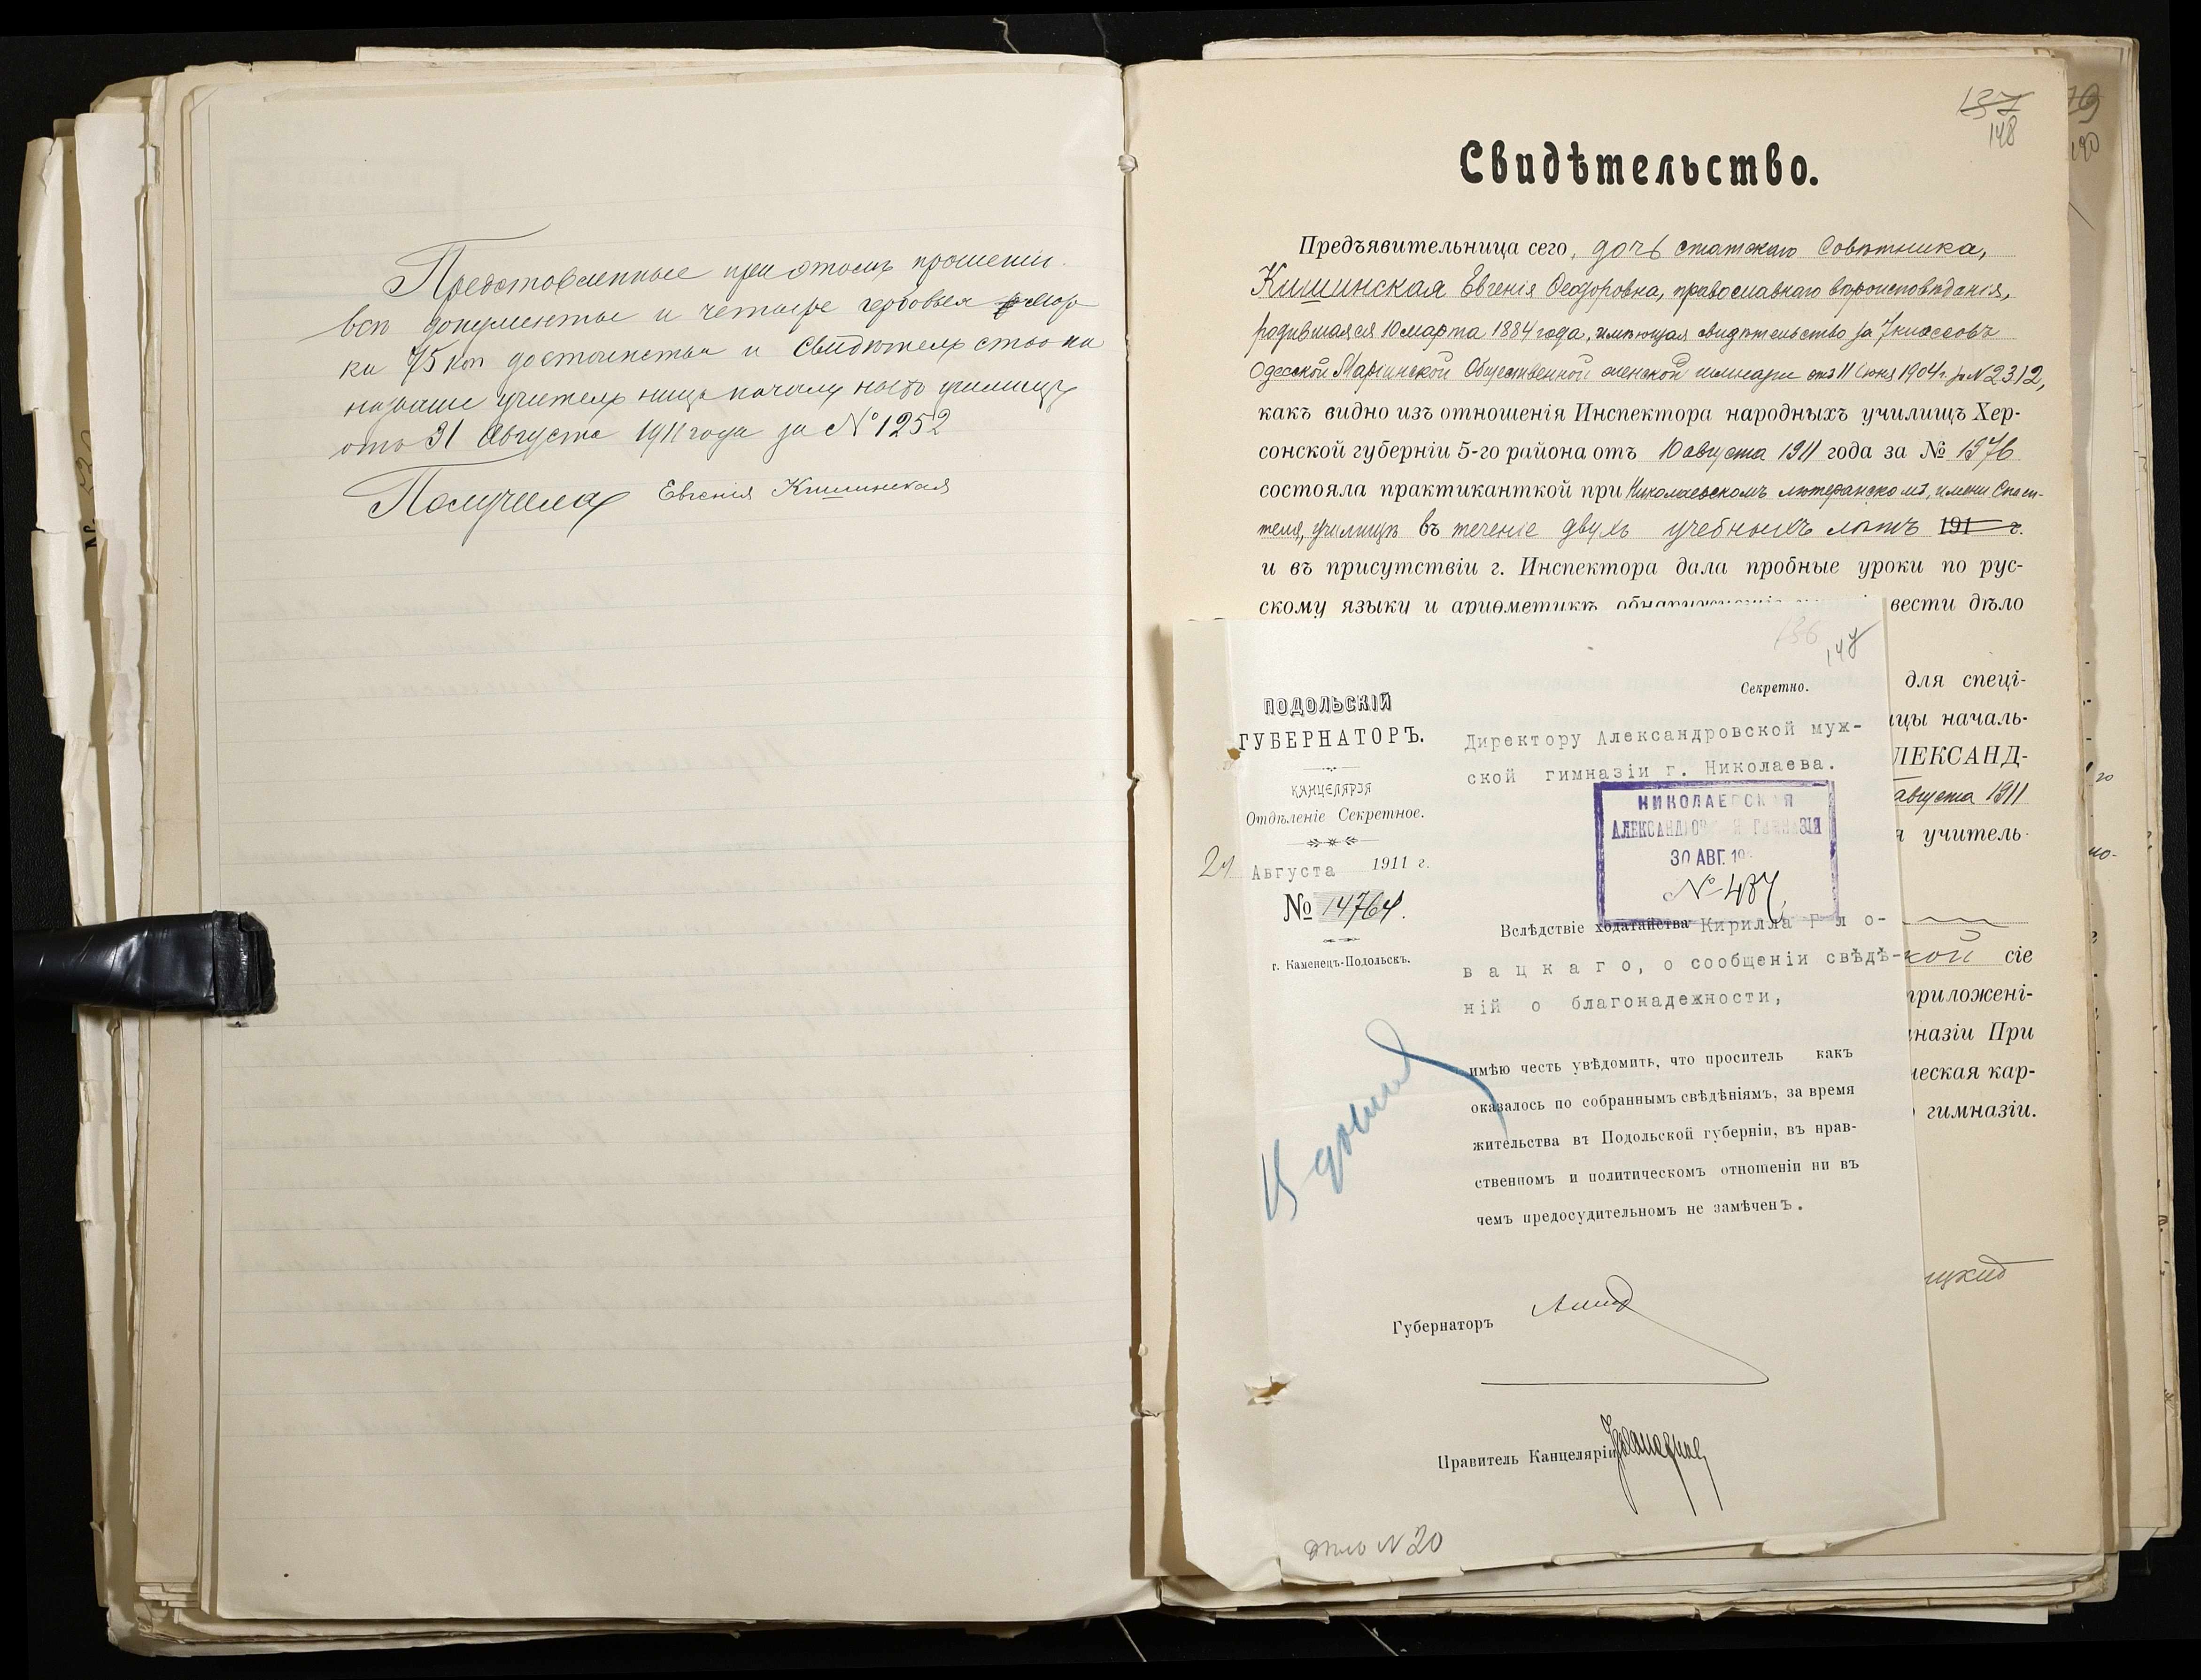 Представленные при этомъ прошеніи
всѣ документы и четыре гербовыя мар
ки 75 коп достоинства и Свидѣтельство на
званіе учительницы начальнаго училища
отъ 31 Августа 1911 года за № 1252
Получила Евгенія Кишинская
137
148
Свидѣтельство.
Предъявительница сего, дочь статскаго Совѣтника,
Кишинская Евгенія Ѳеодоровна, православнаго вѣроисповѣданія,
родившаяся 10 марта 1884 года, имѣющая свидѣтельство за 7 классовъ
Одесской Маріинской Общественной женской гимназіи отъ 11 Іюня 1904 г. за № 2312,
какъ видно изъ отношенія Инспектора народныхъ училищъ Хер-
сонской губерніи 5-го района отъ 10 августа 1911 года за № 1976
состояла практиканткой при Николаевскомъ лютеранскомъ, имени Спаси-
теля, училищѣ въ теченіе двухъ учебныхъ лѣтъ 191 г.
и въ присутствіи г. Инспектора дала пробные уроки по рус-
скому языку и ариѳметикѣ вести дѣло
для спеці-
ицы началь-
ЛЕКСАНД-
августа 1911
я учитель-
кой сіе
приложені-
назіи При
ческая кар-
гимназіи.
ицкій
136
147
Секретно.
ПОДОЛЬСКІЙ
ГУБЕРНАТОРЪ.
КАНЦЕЛЯРІЯ
Отдѣленіе Секретное.
Августа 1911 г.
№ 14764.
г. Каменецъ-Подольскъ.
Директору Александровской муж-
ской гимназіи г. Николаева.
НИКОЛАЕВСКАЯ
АЛЕКСАНДРОВСКАЯ ГИМНАЗІЯ
30 АВГ. 19
№ 487
Вслѣдствіе ходатайства Кирилла Гло-
вацкаго, о сообщеніи свѣдѣ-
ній о благонадежности,
имѣю честь увѣдомить, что проситель какъ
оказалось по собраннымъ свѣдѣніямъ, за время
жительства въ Подольской губерніи, въ нрав-
ственномъ и политическомъ отношеніи ни въ
чемъ предосудительномъ не замѣченъ.
Губернаторъ
Правитель Канцеляріи
дѣло № 20